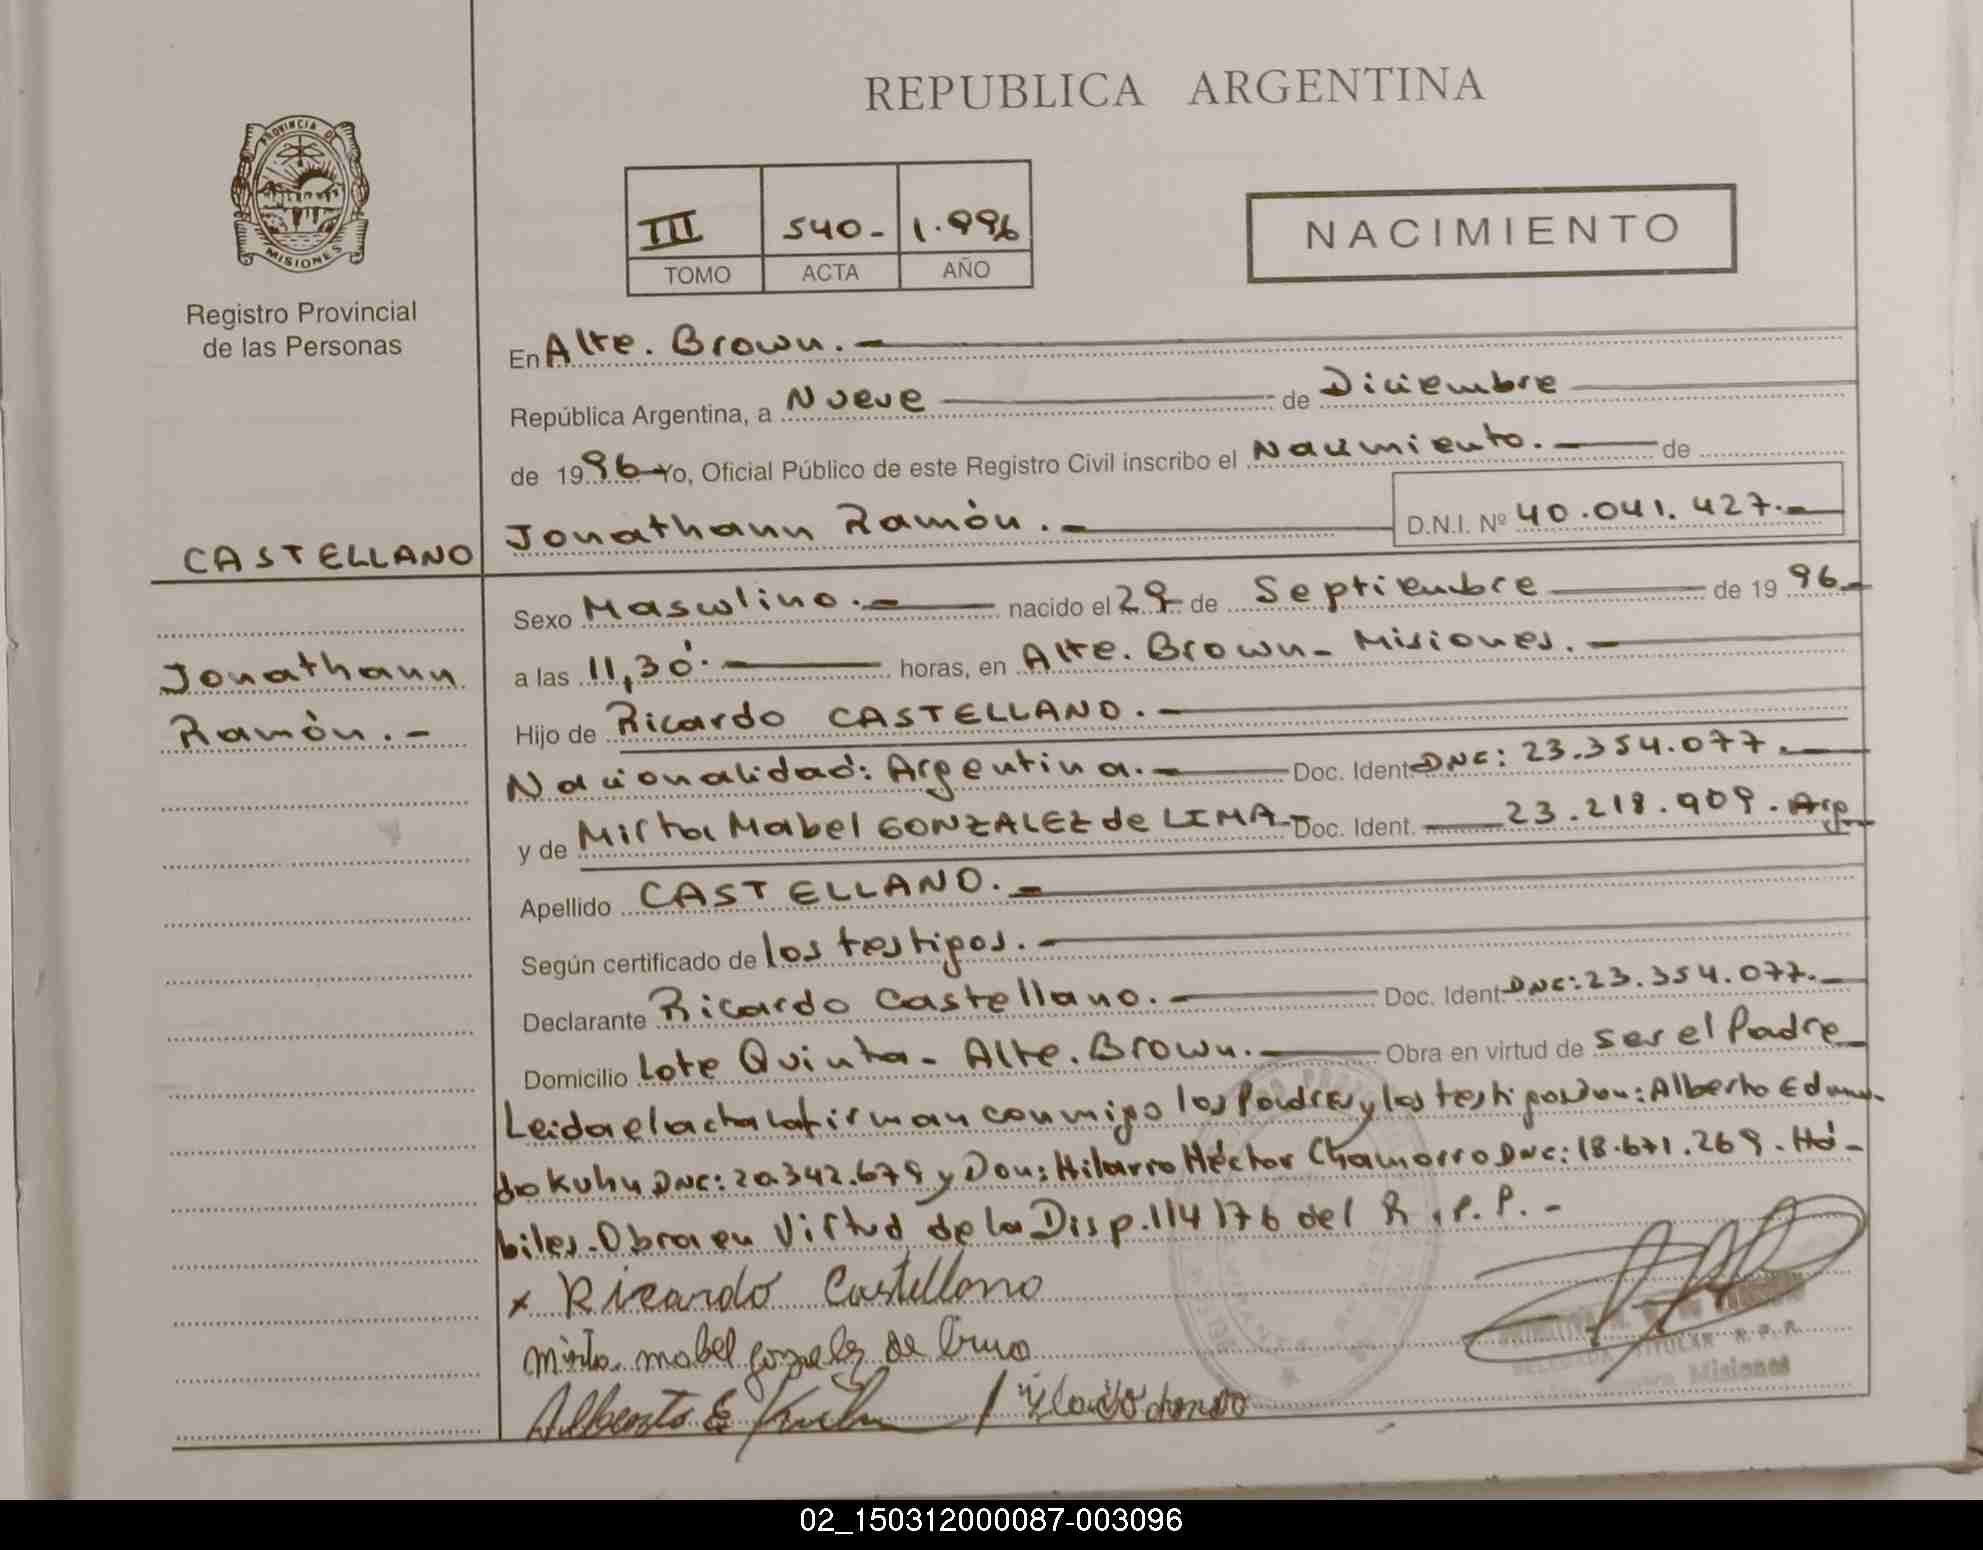 REPUBLICA ARGENTINA
PROVINCIA DE
MISIONES
Registro Provincial
de las Personas
III 540- 1.996
TOMO ACTA AÑO
NACIMIENTO
En Alte. Brown.-
República Argentina, a Nueve de Diciembre
de 1996 Yo, Oficial Público de este Registro Civil inscribo el Nacimiento.- de
Jonathann Ramón.- D.N.I. Nº 40.041.427.-
CASTELLANO
Jonathann
Ramón.-
Sexo Masculino.- nacido el 29 de Septiembre de 1996-
a las 11,30. horas, en Alte. Brown- Misiones.-
Hijo de Ricardo CASTELLANO.-
Nacionalidad: Argentina.- Doc. Ident. DNI: 23.354.077.-
y de Mirta Mabel GONZALEZ de LIMA- Doc. Ident. 23.218.909. Arg
Apellido CASTELLANO.-
Según certificado de los testigos.-
Declarante Ricardo Castellano.- Doc. Ident. DNI: 23.354.077.-
Domicilio Lote Quinta- Alte. Brown.- Obra en virtud de ser el Padre
Leida el acta la firman conmigo los Padres y los testigos Don: Alberto Edmun-
do Kuhn DNI: 20.342.679 y Don: Hilario Héctor Chamorro DNI: 18.671.269. Há-
biles. Obra en Virtud de la Disp. 114/76 del R.P.P.-
x Ricardo Castellano
mirta mabel gonzalez de
Alberto E Kuhn
DELEGADA TITULAR R.P.P.
Misiones
02_150312000087-003096